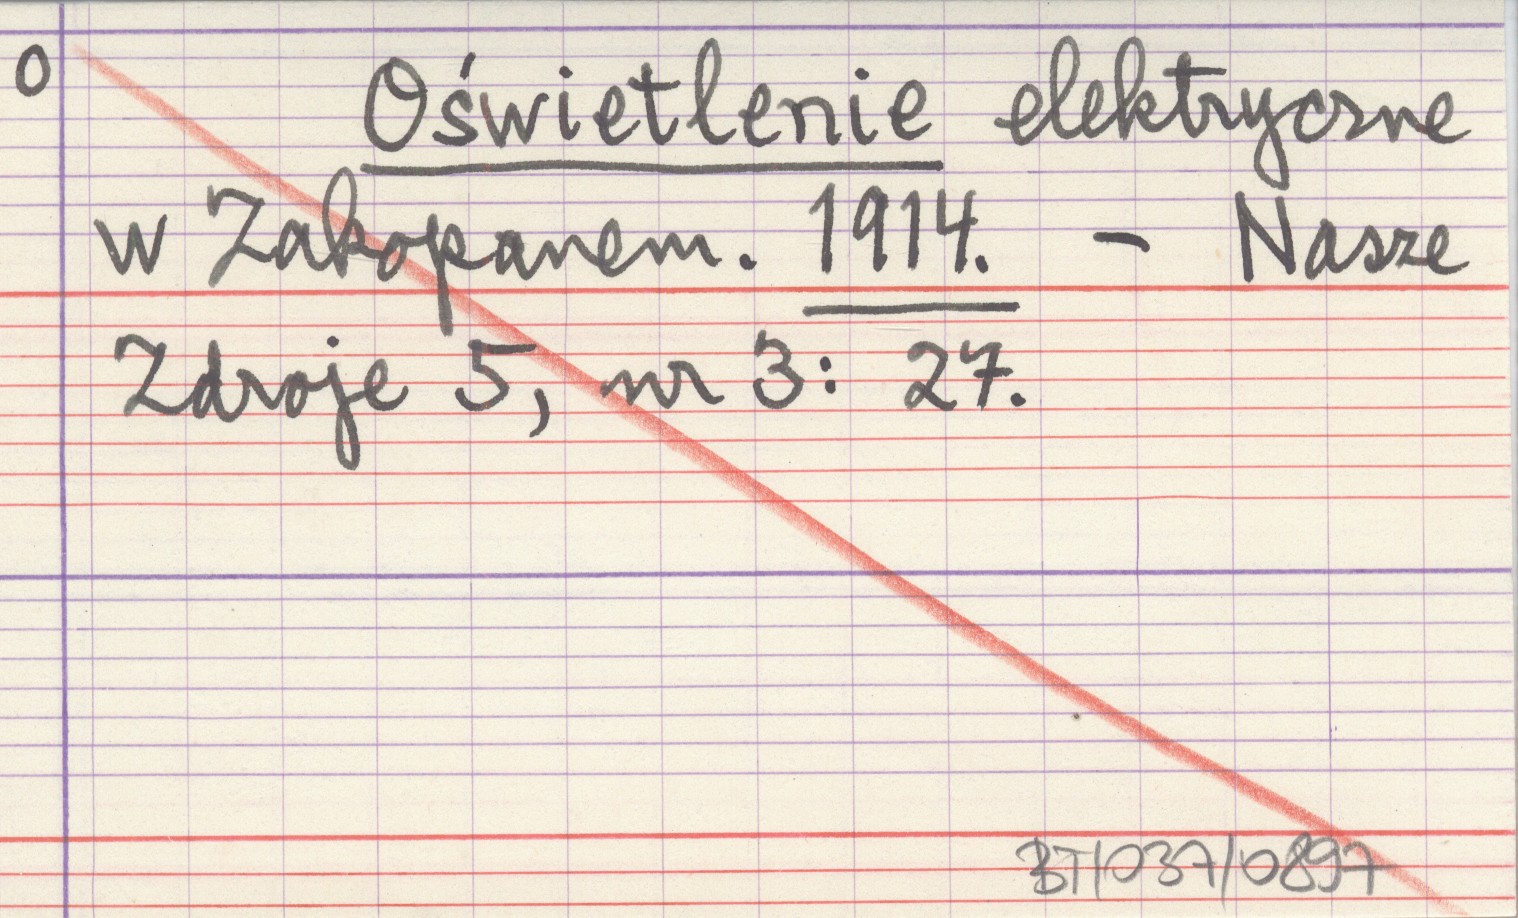 O
Oświetlenie elektryczne
w Zakopanem. 1914. - Nasze
Zdroje 5, nr 3: 27.
BT/037/0897